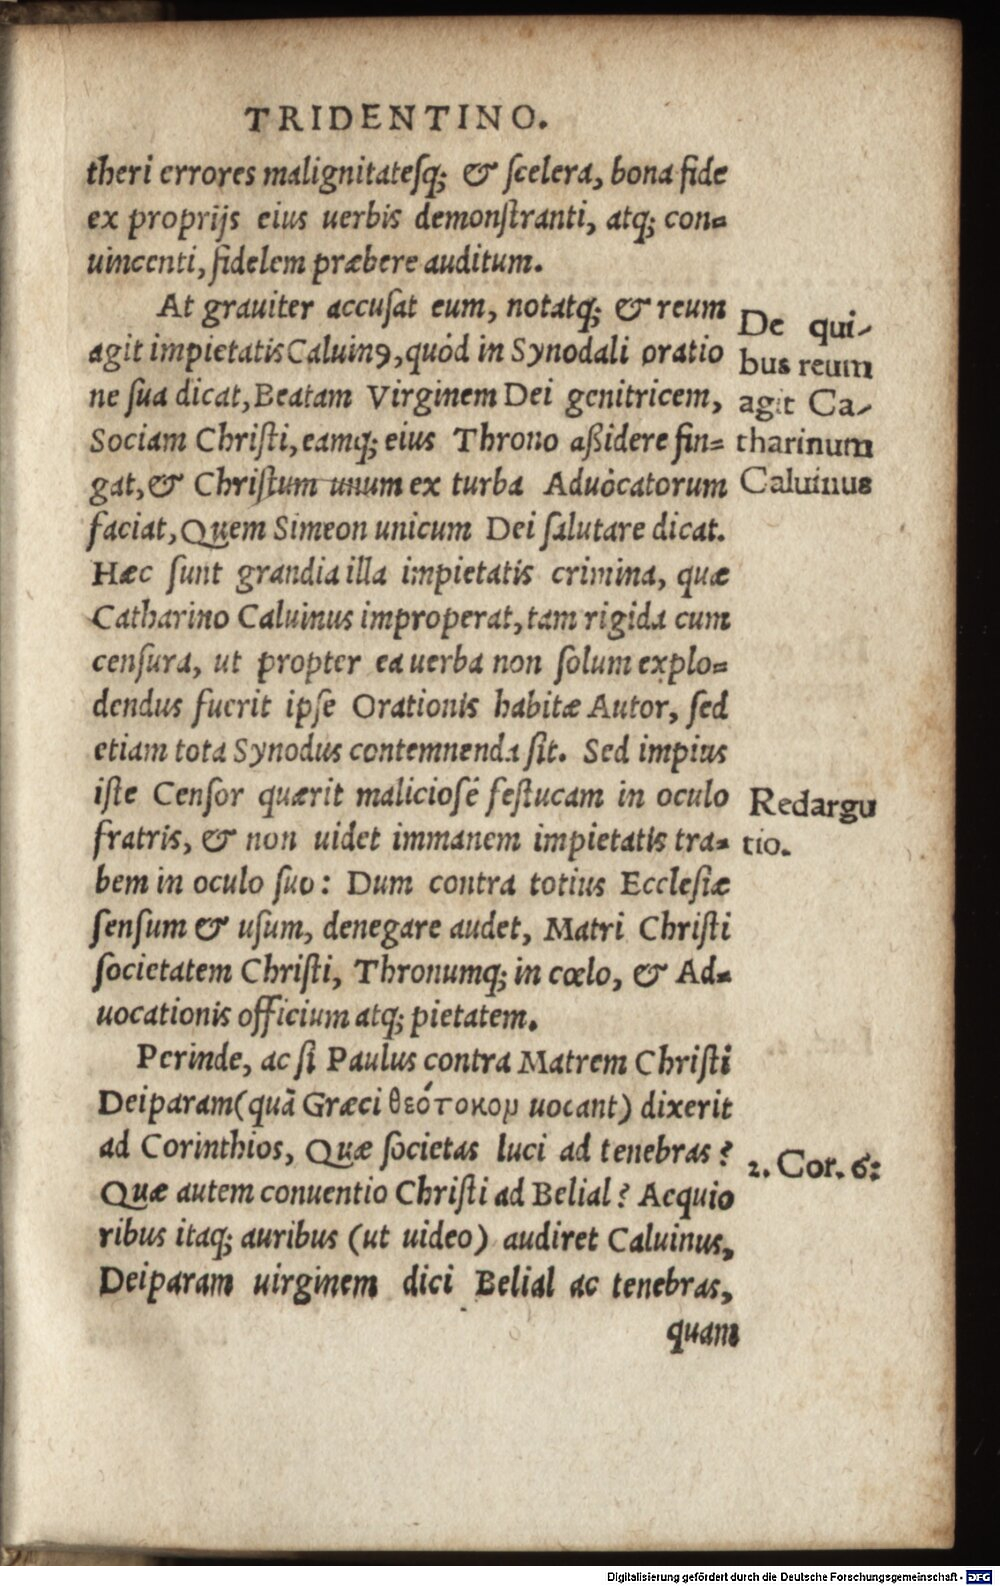 TRIDENTINO.
theri errores malignitatesq; & scelera, bona fide
ex proprijs eius uerbis demonstranti, atq; con=
uincenti, fidelem præbere auditum.
At grauiter accusat eum, notatq; & reum
agit impietatis Caluinꝰ, quòd in Synodali oratio
ne sua dicat, Beatam Virginem Dei genitricem,
Sociam Christi, eamq; eius Throno aßidere fin=
gat, & Christum unum ex turba Aduocatorum
faciat, Quem Simeon unicum Dei salutare dicat.
Hæc sunt grandia illa impietatis crimina, quæ
Catharino Caluinus improperat, tam rigida cum
censura, ut propter ea uerba non solum explo=
dendus fuerit ipse Orationis habitæ Autor, sed
etiam tota Synodus contemnenda sit. Sed impius
iste Censor quærit maliciosè festucam in oculo
fratris, & non uidet immanem impietatis tra=
bem in oculo suo: Dum contra totius Ecclesiæ
sensum & usum, denegare audet, Matri Christi
societatem Christi, Thronumq; in cœlo, & Ad=
uocationis officium atq; pietatem.
Perinde, ac si Paulus contra Matrem Christi
Deiparam (quã Græci θεότοκομ uocant) dixerit
ad Corinthios, Quæ societas luci ad tenebras?
Quæ autem conuentio Christi ad Belial? Aequio
ribus itaq; auribus (ut uideo) audiret Caluinus,
Deiparam uirginem dici Belial ac tenebras,
quam
De qui-
bus reum
agit Ca-
tharinum
Caluinus
Redargu
tio.
2. Cor. 6:
Digitalisierung gefördert durch die Deutsche Forschungsgemeinschaft - DFG